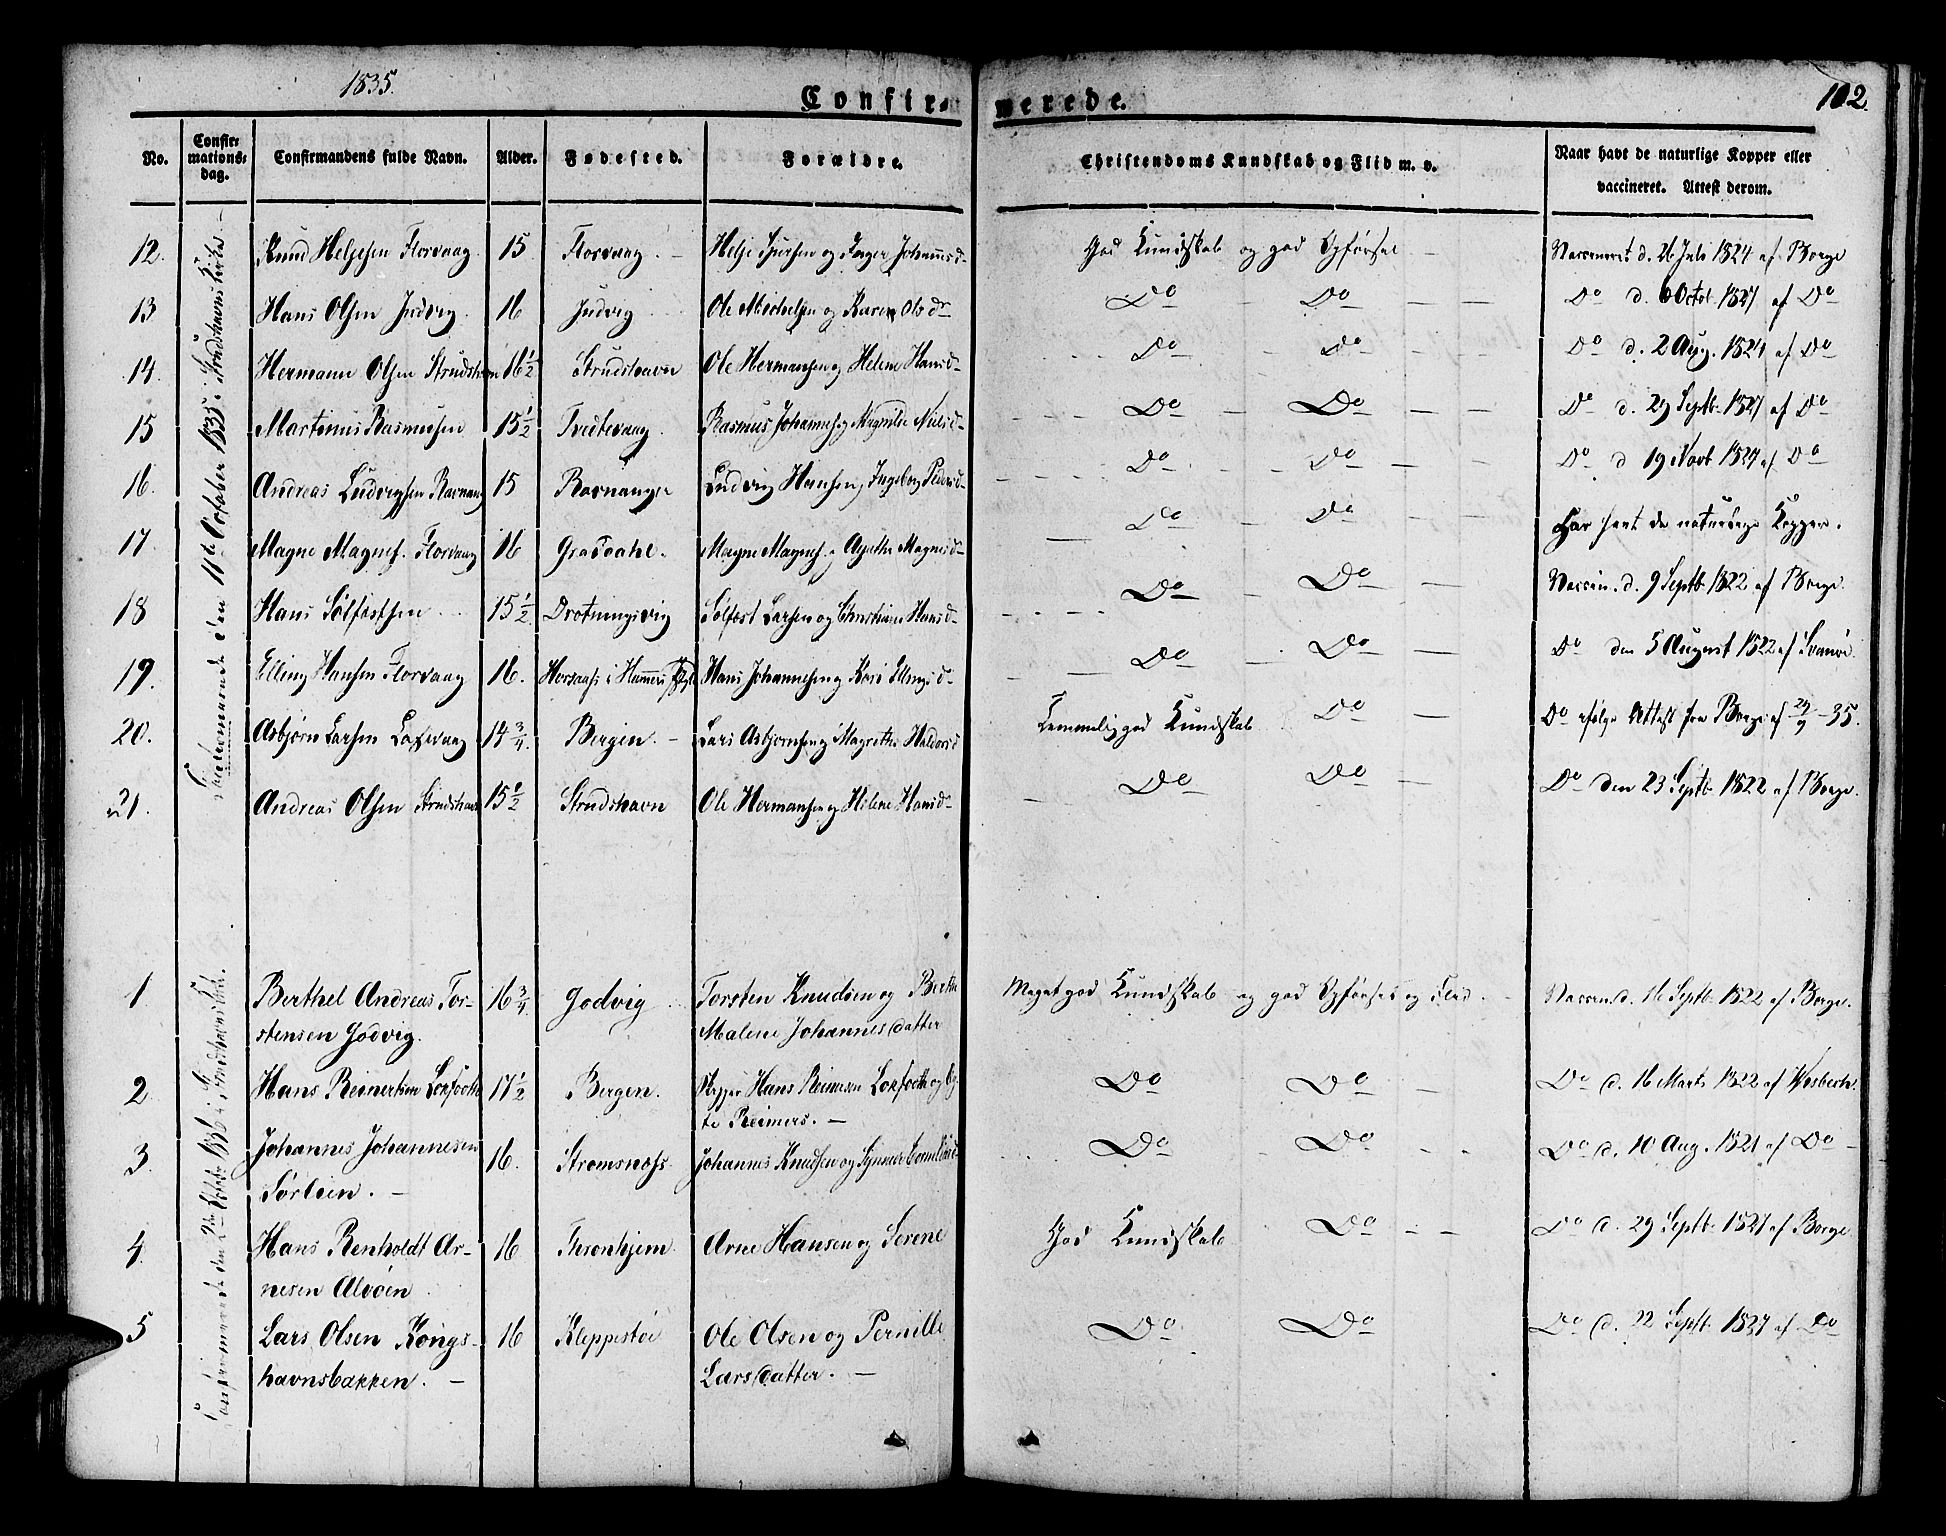 1835.
Confir-
merede.
102.
No.
Confir-
mations-
dag.
Confirmandens fulde Navn.
Alder.
Fødested.
Forældre.
Christendoms Kundskab og Flid m. v.
Naar havt de naturlige Kopper eller
vaccineret. Attest derom.
den 11te October 1835 i Strudshavns Kirke
12. Knud Helgesen Florvaag 15 Florvaag. Helje og Inger Johannesd- God Kundskab og god Opførsel Vaccineret d. 26 Juli 1824 af Borge
13 Hans Olsen Judvig 16 Judvig Ole Michelsen og Karen Olsdr Do Do Do d. 6 Octob. 1827 af Do
14. Hermann Olsen Strudshavn 16½ Strudshavn Ole Hermansen og Helene Hansd- Do Do Do d. 2 Aug. 1821 af Do
15 Martinus Rasmusen 15½ Tvedtevaag Rasmus Johannes og Magnilde Nielsd- Do Do Do d. 29 Septb. 1827 af Do
16. Andreas Ludvigsen Ravnang 15 Ravnanger Ludvig Hansen og Ingeborg Pedersd- Do Do Do d 19 Novb 1827 af Do
17 Magne Magnes. Florvaag 16 Magne Magnes. og Agathe Magnesd- Do Do Har havt de naturlige Kopper.
18 Hans Sölfestsen 15½ Drotningsvig Sölfest Larsen og Christiane Hansd- Do Do Vaccin. d. 9 Septb 1822 af Borge.
19. Elling Hansen Florvaag 16. i Hammers Hans Johannesen og Kari Ellingsd- Do Do Do den 5 August 1822 af Svanøe.
20. Asbjørn Larsen Laxevaag 14¾ Bergen. Lars Asbjørnsen og Magrethe Haldorsd Temmelig god Kundskab Do Do ifølge Attest fra Borge af 29/9 - 35.
21. Andreas Olsen Strudshavn 15½ Strudshavn Ole Hermansen og Helene Hansd- Do Do Do den 23 Septb. 1822 af Borge.
Confirmerede den 2den Octbr 1836 i Strudshavns Kirke.
1. Berthel Andreas Tor- 16¾ Godvig Torsten Knudsen og Berthe Meget god Kundskab og god Opførsel og Flid. Vaccin d. 16 Septb. 1822 af Borge.
stensen Godvig. Malene Johannesdatter
2 Hans Reinertsen 17½ Bergen. Hans Reimers og Do Do Do d. 16 Marts 1822 af
Reimers.
3. Johannes Johannesen 16. Strømsnæss. Johannes Knudsen og Do Do Do d. 10 Aug. 1821 af Do
Sørleen.
4. Hans Renholdt Ar- 16 Thronhjem. Arne Hansen og Serene God Kundskab Do Do d. 29 Septb. 1821 af Borge
nesen Alvöen
5 Lars Olsen Kongs- 16 Kleppestöe Ole Olsen og Pernille Do Do Do d. 22 Septb. 1827 af Do
havnsbakken. Larsdatter.